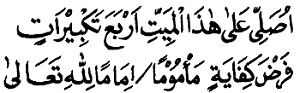 اُصَلِّى عَلَى هٰذَا الْمَيِّتِ اَرْبَعَ تَكْبِيْرَاتٍ
فَرْضَ كِفَايَةٍ مَأْمُوْمًا/اِمَامًا لِلّٰهِ تَعَالَى